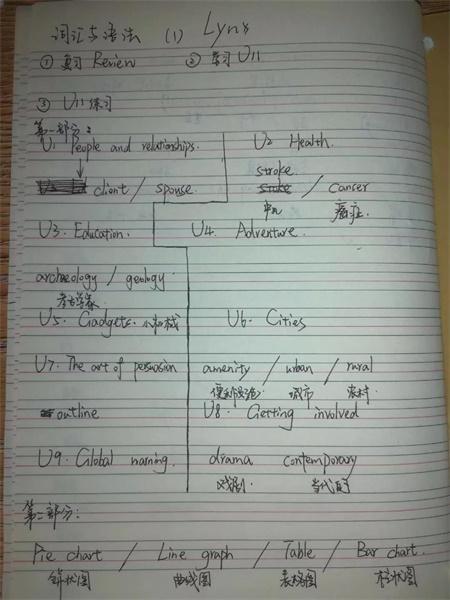 词汇与语法 (1) Lynx
① 复习 Review ② 学习 U11
③ U11 练习
第一部分:
U1 People and relationships. U2 Health.
client / spouse. stroke / cancer
中风 癌症.
U3. Education. U4. Adventure.
archaeology / geology.
U5. Gadgets. 小机械 U6. Cities
U7. The art of persuasion amenity / urban / rural
便利设施 城市 农村
outline U8. Getting involved
U9. Global warning. drama contemporary
戏剧. 当代
第二部分:
Pie chart / Line graph / Table / Bar chart.
饼状图 曲线图 表格图 柱状图